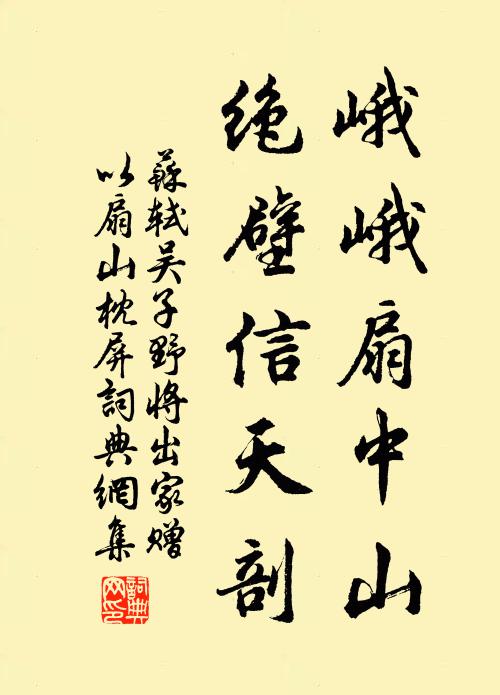 峨峨扇中山
绝壁信天剖
蘇軾吴子野將出家赠
以扇山枕屏詞典網集
詞典网印